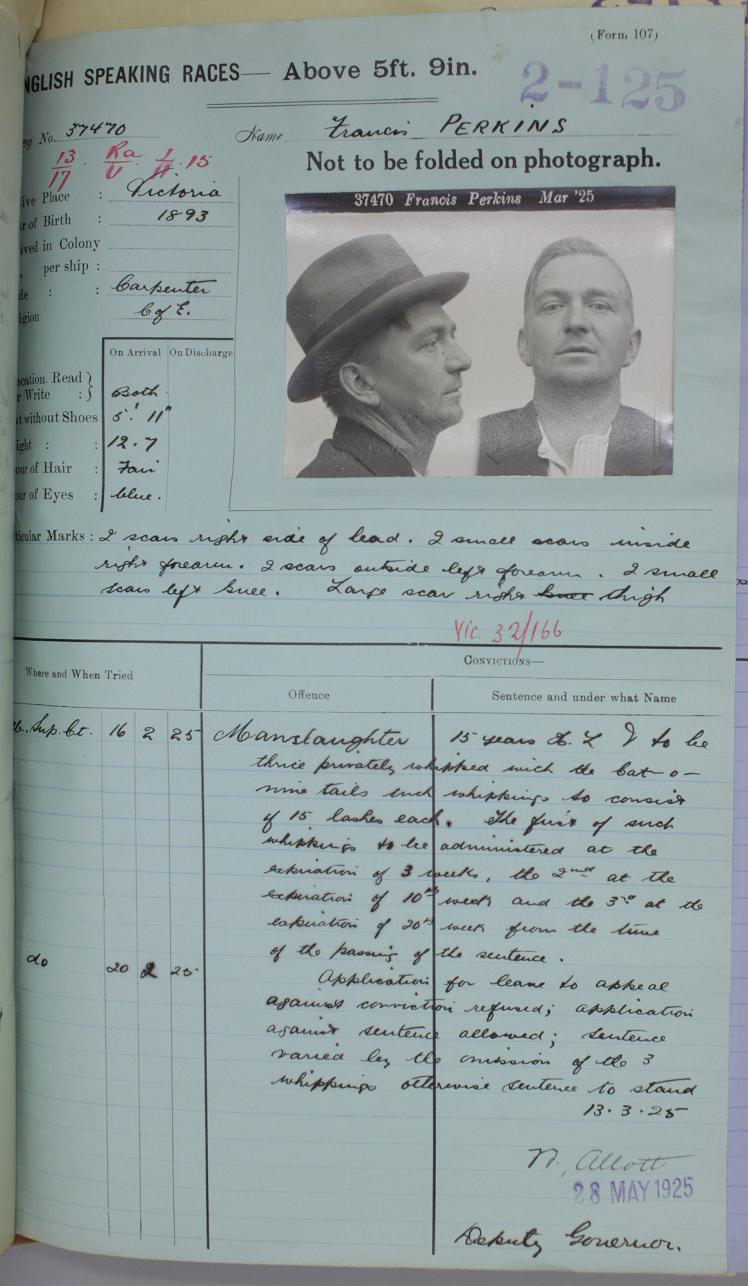 (Form 107)
NGLISH SPEAKING RACES— Above 5ft. 9in.
2-125
eg No. 37470
Name Francis PERKINS
13/17 Ra/U 15
Not to be folded on photograph.
ive Place : Victoria
r of Birth : 1893
ived in Colony
per ship :
de : : Carpenter
igion C of E.
37470 Francis Perkins Mar '25
On Arrival On Discharge
ucation. Read }
r Write : } Both
t without Shoes 5' 11"
ight : : 12.7
our of Hair : Fair
ur of Eyes : blue.
ticular Marks : 2 scars right side of head. 2 small scars inside
right forearm. 2 scars outside left forearm. 2 small
scars left knee. Large scar right knee thigh
Vic. 32/166
Where and When Tried
Convictions—
Offence
Sentence and under what Name
Sup. Ct. 16 2 25 Manslaughter 15 years H. L & to be
thrice privately whipped with the Cat-o-
nine tails such whippings to consist
of 15 lashes each. The first of such
whippings to be administered at the
expiration of 3 weeks, the 2nd at the
expiration of 10th week and the 3rd at the
expiration of 20th week from the time
of the passing of the sentence.
do 20 2 25
Application for leave to appeal
against conviction refused; application
against sentence allowed; sentence
varied by the omission of the 3
whippings otherwise sentence to stand
13.3.25
N. Allott
28 MAY 1925
Deputy Governor.